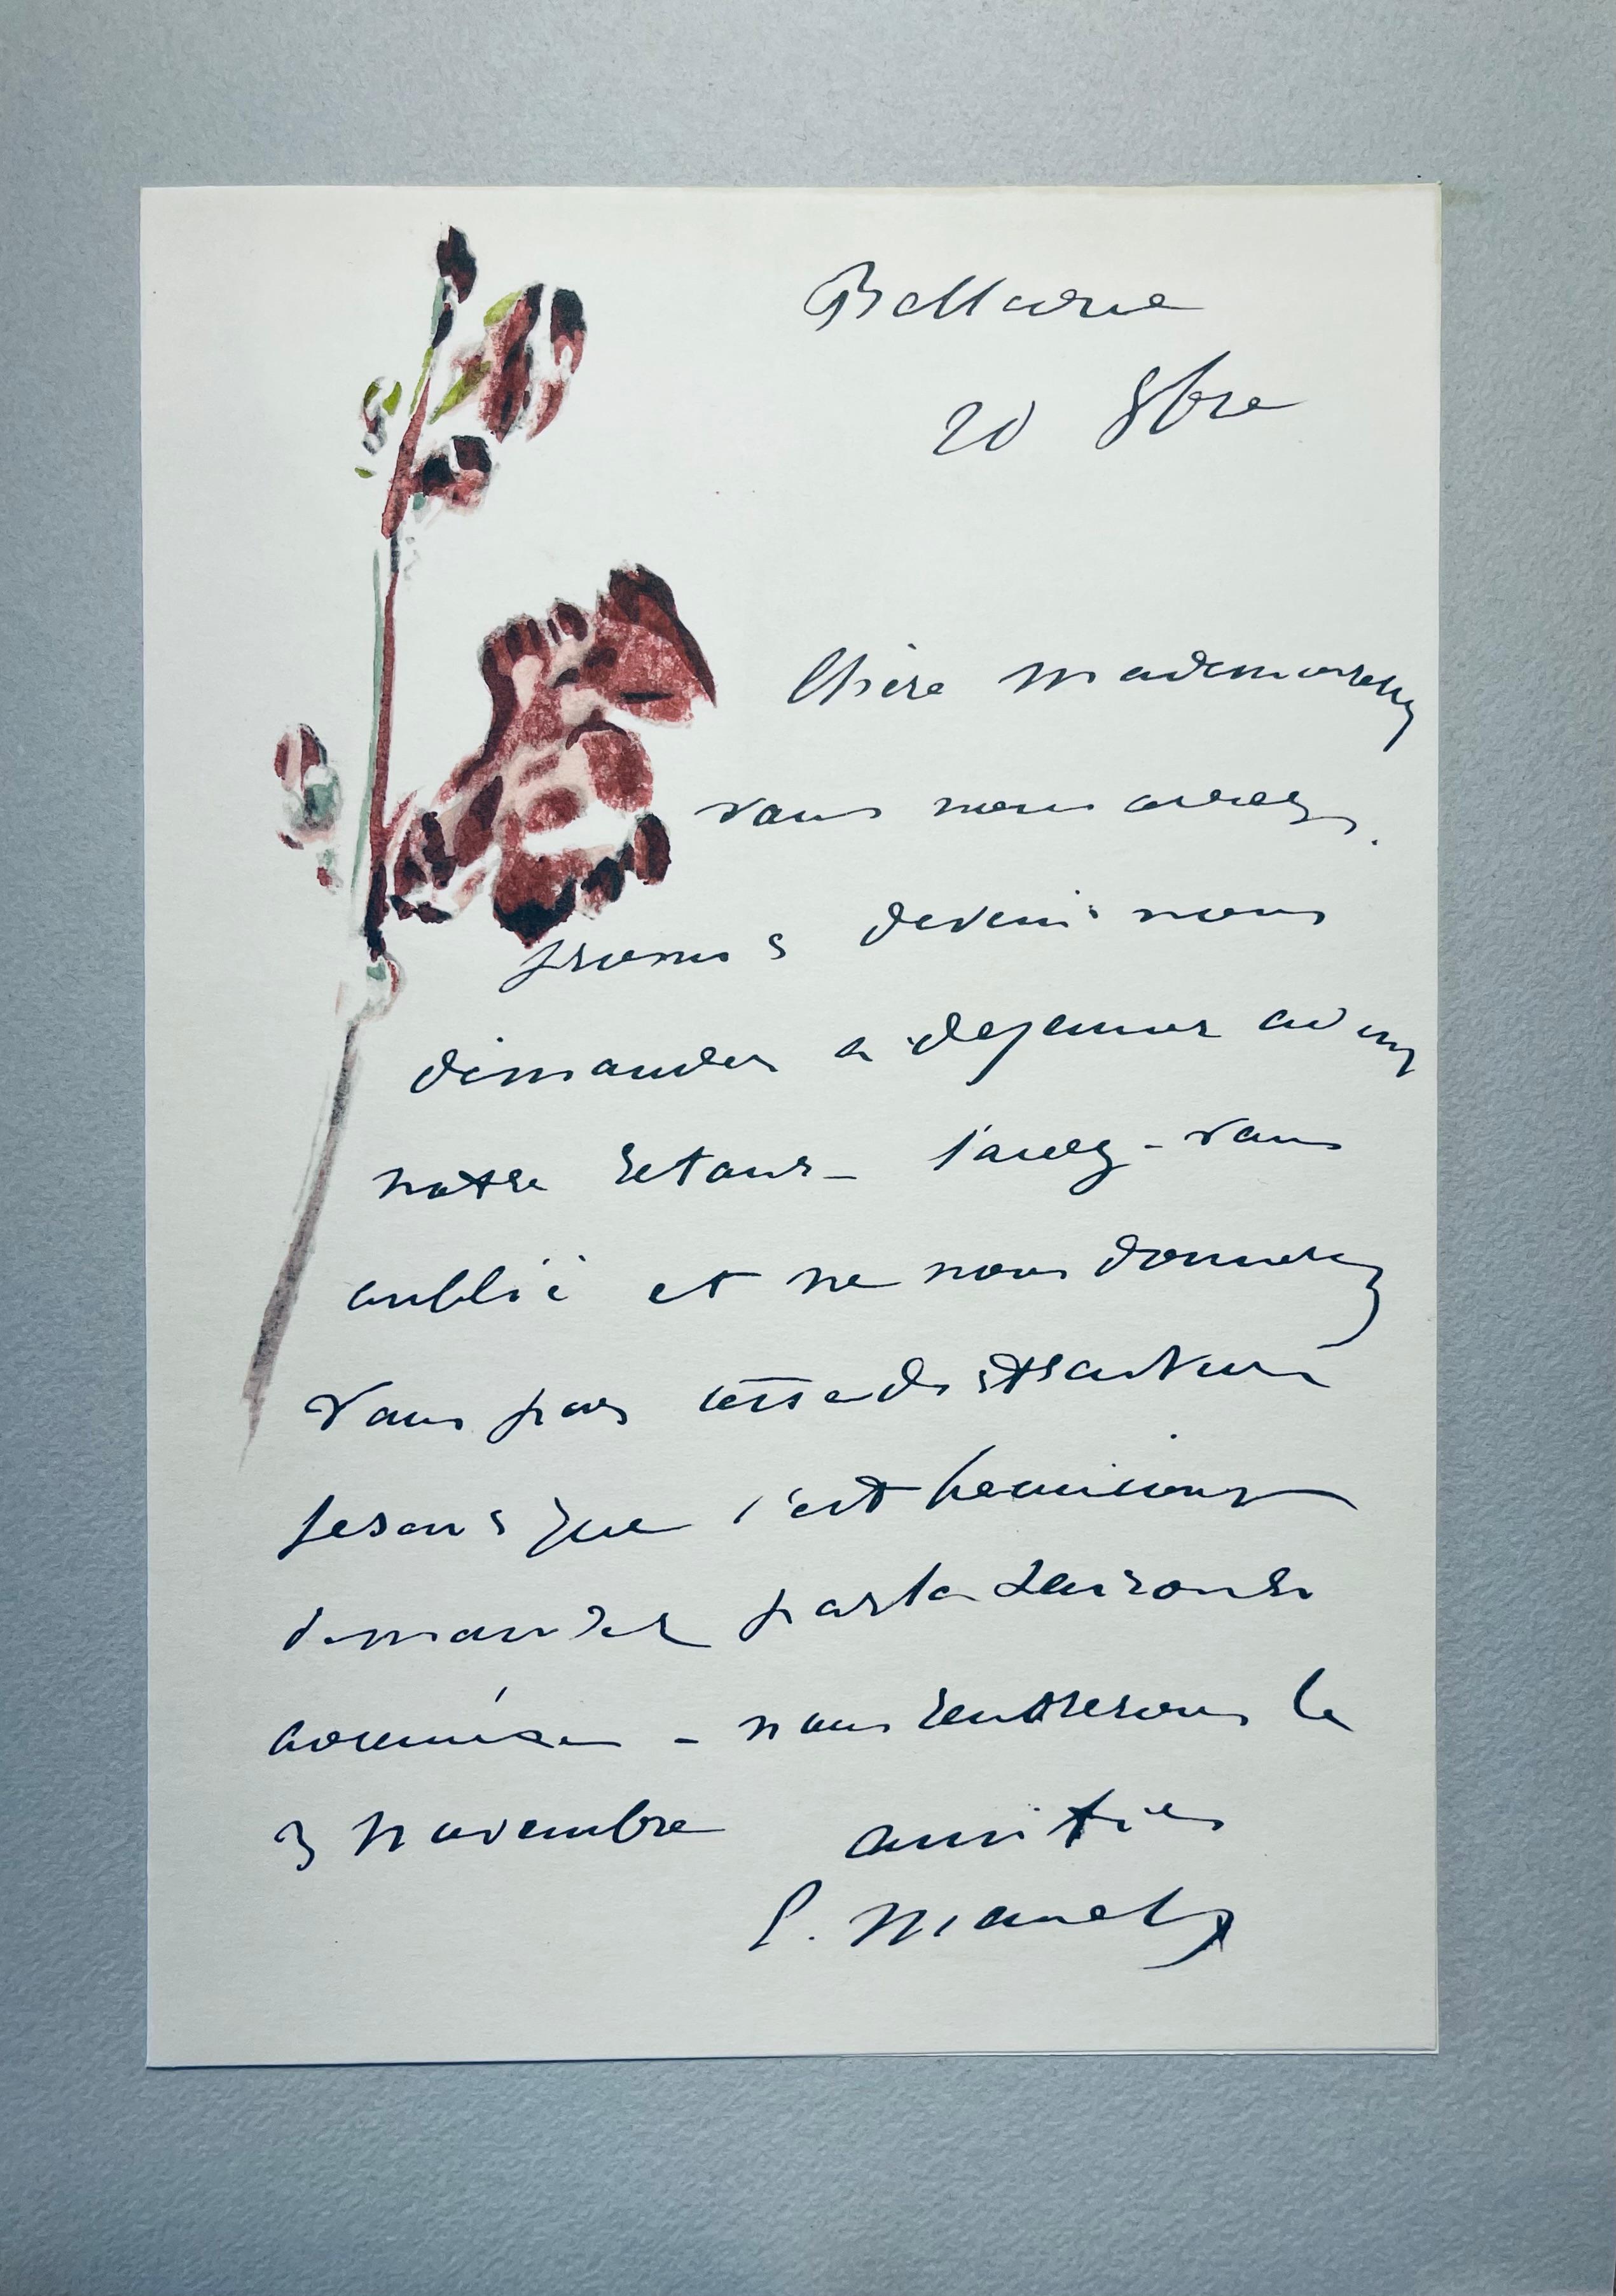 Bellevue
20 8bre
Chère mademoiselle
vous nous aviez
promis de venir nous
demander a dejeuner avant
notre retour - l'avez-vous
oublié et ne nous donnerez
vous pas cette distraction
je sais que c'est beaucoup
demander par la saison
- nous rentrerons le
3 novembre amitiés
E. Manet